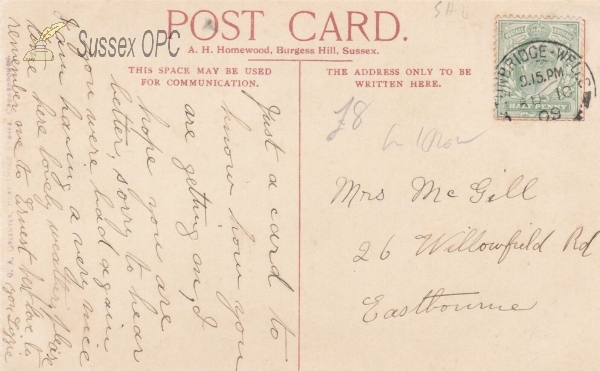 POST CARD.
A. H. Homewood, Burgess Hill, Sussex.
THIS SPACE MAY BE USED
FOR COMMUNICATION.
THE ADDRESS ONLY TO BE
WRITTEN HERE.
Sussex OPC
TUNBRIDGE-WELLS
9.15.PM
10
09
HALFPENNY
£8
Just a card to
know how you
are getting on, I
hope you are
better, sorry to hear
you were bad again
I am having a very nice
time here lovely weather, please
remember me to Ernest best love to
you Lizzie
Mrs McGill
26 Willowfield Rd
Eastbourne